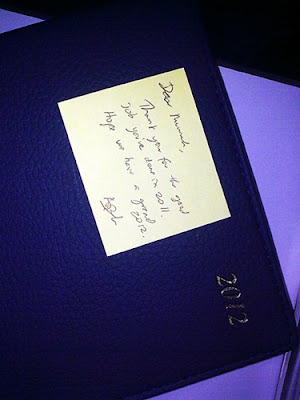 Dear
Thank you for the good
job you've done in 2011.
Hope we have a grand
2012.
2012